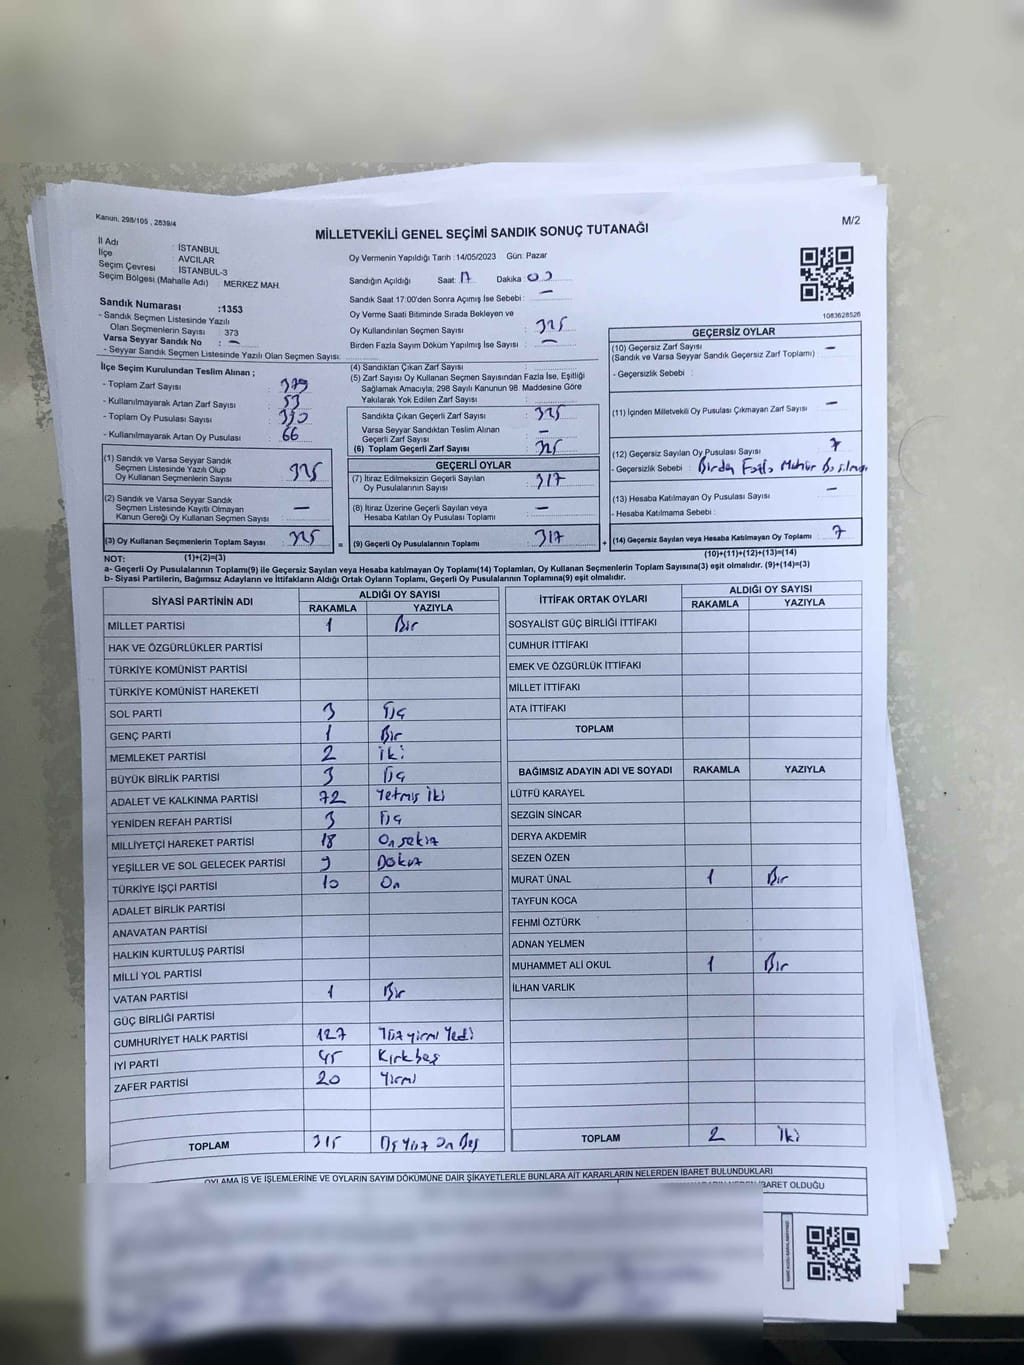 Kanun, 298/105 , 2839/4
M/2
MİLLETVEKİLİ GENEL SEÇİMİ SANDIK SONUÇ TUTANAĞI
İl Adı : İSTANBUL
İlçe : AVCILAR
Seçim Çevresi : İSTANBUL-3
Seçim Bölgesi (Mahalle Adı) : MERKEZ MAH.
Oy Vermenin Yapıldığı Tarih :14/05/2023 Gün: Pazar
Sandığın Açıldığı Saat: 17 Dakika 00
Sandık Saat 17:00'den Sonra Açımış İse Sebebi : —
Oy Verme Saati Bitiminde Sırada Bekleyen ve
Oy Kullandırılan Seçmen Sayısı : 325
Birden Fazla Sayım Döküm Yapılmış İse Sayısı : —
Sandık Numarası :1353
- Sandık Seçmen Listesinde Yazılı
Olan Seçmenlerin Sayısı : 373
Varsa Seyyar Sandık No : —
- Seyyar Sandık Seçmen Listesinde Yazılı Olan Seçmen Sayısı:
İlçe Seçim Kurulundan Teslim Alınan ;
- Toplam Zarf Sayısı :
- Kullanılmayarak Artan Zarf Sayısı : 53
- Toplam Oy Pusulası Sayısı :
- Kullanılmayarak Artan Oy Pusulası : 66
(1) Sandık ve Varsa Seyyar Sandık
Seçmen Listesinde Yazılı Olup
Oy Kullanan Seçmenlerin Sayısı 325
(2) Sandık ve Varsa Seyyar Sandık
Seçmen Listesinde Kayıtlı Olmayan
Kanun Gereği Oy Kullanan Seçmen Sayısı —
(3) Oy Kullanan Seçmenlerin Toplam Sayısı 325
(4) Sandıktan Çıkan Zarf Sayısı :
(5) Zarf Sayısı Oy Kullanan Seçmen Sayısından Fazla İse, Eşitliği
Sağlamak Amacıyla; 298 Sayılı Kanunun 98. Maddesine Göre
Yakılarak Yok Edilen Zarf Sayısı :
Sandıkta Çıkan Geçerli Zarf Sayısı : 325
Varsa Seyyar Sandıktan Teslim Alınan
Geçerli Zarf Sayısı : —
(6) Toplam Geçerli Zarf Sayısı : 325
GEÇERLİ OYLAR
(7) İtiraz Edilmeksizin Geçerli Sayılan
Oy Pusulalarının Sayısı : 317
(8) İtiraz Üzerine Geçerli Sayılan veya
Hesaba Katılan Oy Pusulası Toplamı —
= (9) Geçerli Oy Pusulalarının Toplamı 317
1083628526
GEÇERSİZ OYLAR
(10) Geçersiz Zarf Sayısı —
(Sandık ve Varsa Seyyar Sandık Geçersiz Zarf Toplamı)
- Geçersizlik Sebebi :
(11) İçinden Milletvekili Oy Pusulası Çıkmayan Zarf Sayısı —
(12) Geçersiz Sayılan Oy Pusulası Sayısı 7
- Geçersizlik Sebebi : Birden Fazla Mühür Basılması
(13) Hesaba Katılmayan Oy Pusulası Sayısı —
- Hesaba Katılmama Sebebi :
+ (14) Geçersiz Sayılan veya Hesaba Katılmayan Oy Toplamı 7
NOT: (1)+(2)=(3)
(10)+(11)+(12)+(13)=(14)
a- Geçerli Oy Pusulalarının Toplamı(9) ile Geçersiz Sayılan veya Hesaba katılmayan Oy Toplamı(14) Toplamları, Oy Kullanan Seçmenlerin Toplam Sayısına(3) eşit olmalıdır. (9)+(14)=(3)
b- Siyasi Partilerin, Bağımsız Adayların ve İttifakların Aldığı Ortak Oyların Toplamı, Geçerli Oy Pusulalarının Toplamına(9) eşit olmalıdır.
SİYASİ PARTİNİN ADI ALDIĞI OY SAYISI
RAKAMLA YAZIYLA
MİLLET PARTİSİ 1 Bir
HAK VE ÖZGÜRLÜKLER PARTİSİ
TÜRKİYE KOMÜNİST PARTİSİ
TÜRKİYE KOMÜNİST HAREKETİ
SOL PARTİ 3 Üç
GENÇ PARTİ 1 Bir
MEMLEKET PARTİSİ 2 iki
BÜYÜK BİRLİK PARTİSİ 3 Üç
ADALET VE KALKINMA PARTİSİ 72 Yetmiş İki
YENİDEN REFAH PARTİSİ 3 Üç
MİLLİYETÇİ HAREKET PARTİSİ 18 Onsekiz
YEŞİLLER VE SOL GELECEK PARTİSİ 9 Dokuz
TÜRKİYE İŞÇİ PARTİSİ 10 On
ADALET BİRLİK PARTİSİ
ANAVATAN PARTİSİ
HALKIN KURTULUŞ PARTİSİ
MİLLİ YOL PARTİSİ
VATAN PARTİSİ 1 Bir
GÜÇ BİRLİĞİ PARTİSİ
CUMHURİYET HALK PARTİSİ 127 Yüz yirmi Yedi
İYİ PARTİ 45 Kırkbeş
ZAFER PARTİSİ 20 Yirmi
TOPLAM 315 Üç Yüz On Beş
İTTİFAK ORTAK OYLARI ALDIĞI OY SAYISI
RAKAMLA YAZIYLA
SOSYALİST GÜÇ BİRLİĞİ İTTİFAKI
CUMHUR İTTİFAKI
EMEK VE ÖZGÜRLÜK İTTİFAKI
MİLLET İTTİFAKI
ATA İTTİFAKI
TOPLAM
BAĞIMSIZ ADAYIN ADI VE SOYADI RAKAMLA YAZIYLA
LÜTFÜ KARAYEL
SEZGİN SİNCAR
DERYA AKDEMİR
SEZEN ÖZEN
MURAT ÜNAL 1 Bir
TAYFUN KOCA
FEHMİ ÖZTÜRK
ADNAN YELMEN
MUHAMMET ALİ OKUL 1 Bir
İLHAN VARLIK
TOPLAM 2 İki
OYLAMA İŞ VE İŞLEMLERİNE VE OYLARIN SAYIM DÖKÜMÜNE DAİR ŞİKAYETLERLE BUNLARA AİT KARARLARIN NELERDEN İBARET BULUNDUKLARI
İBARET OLDUĞU